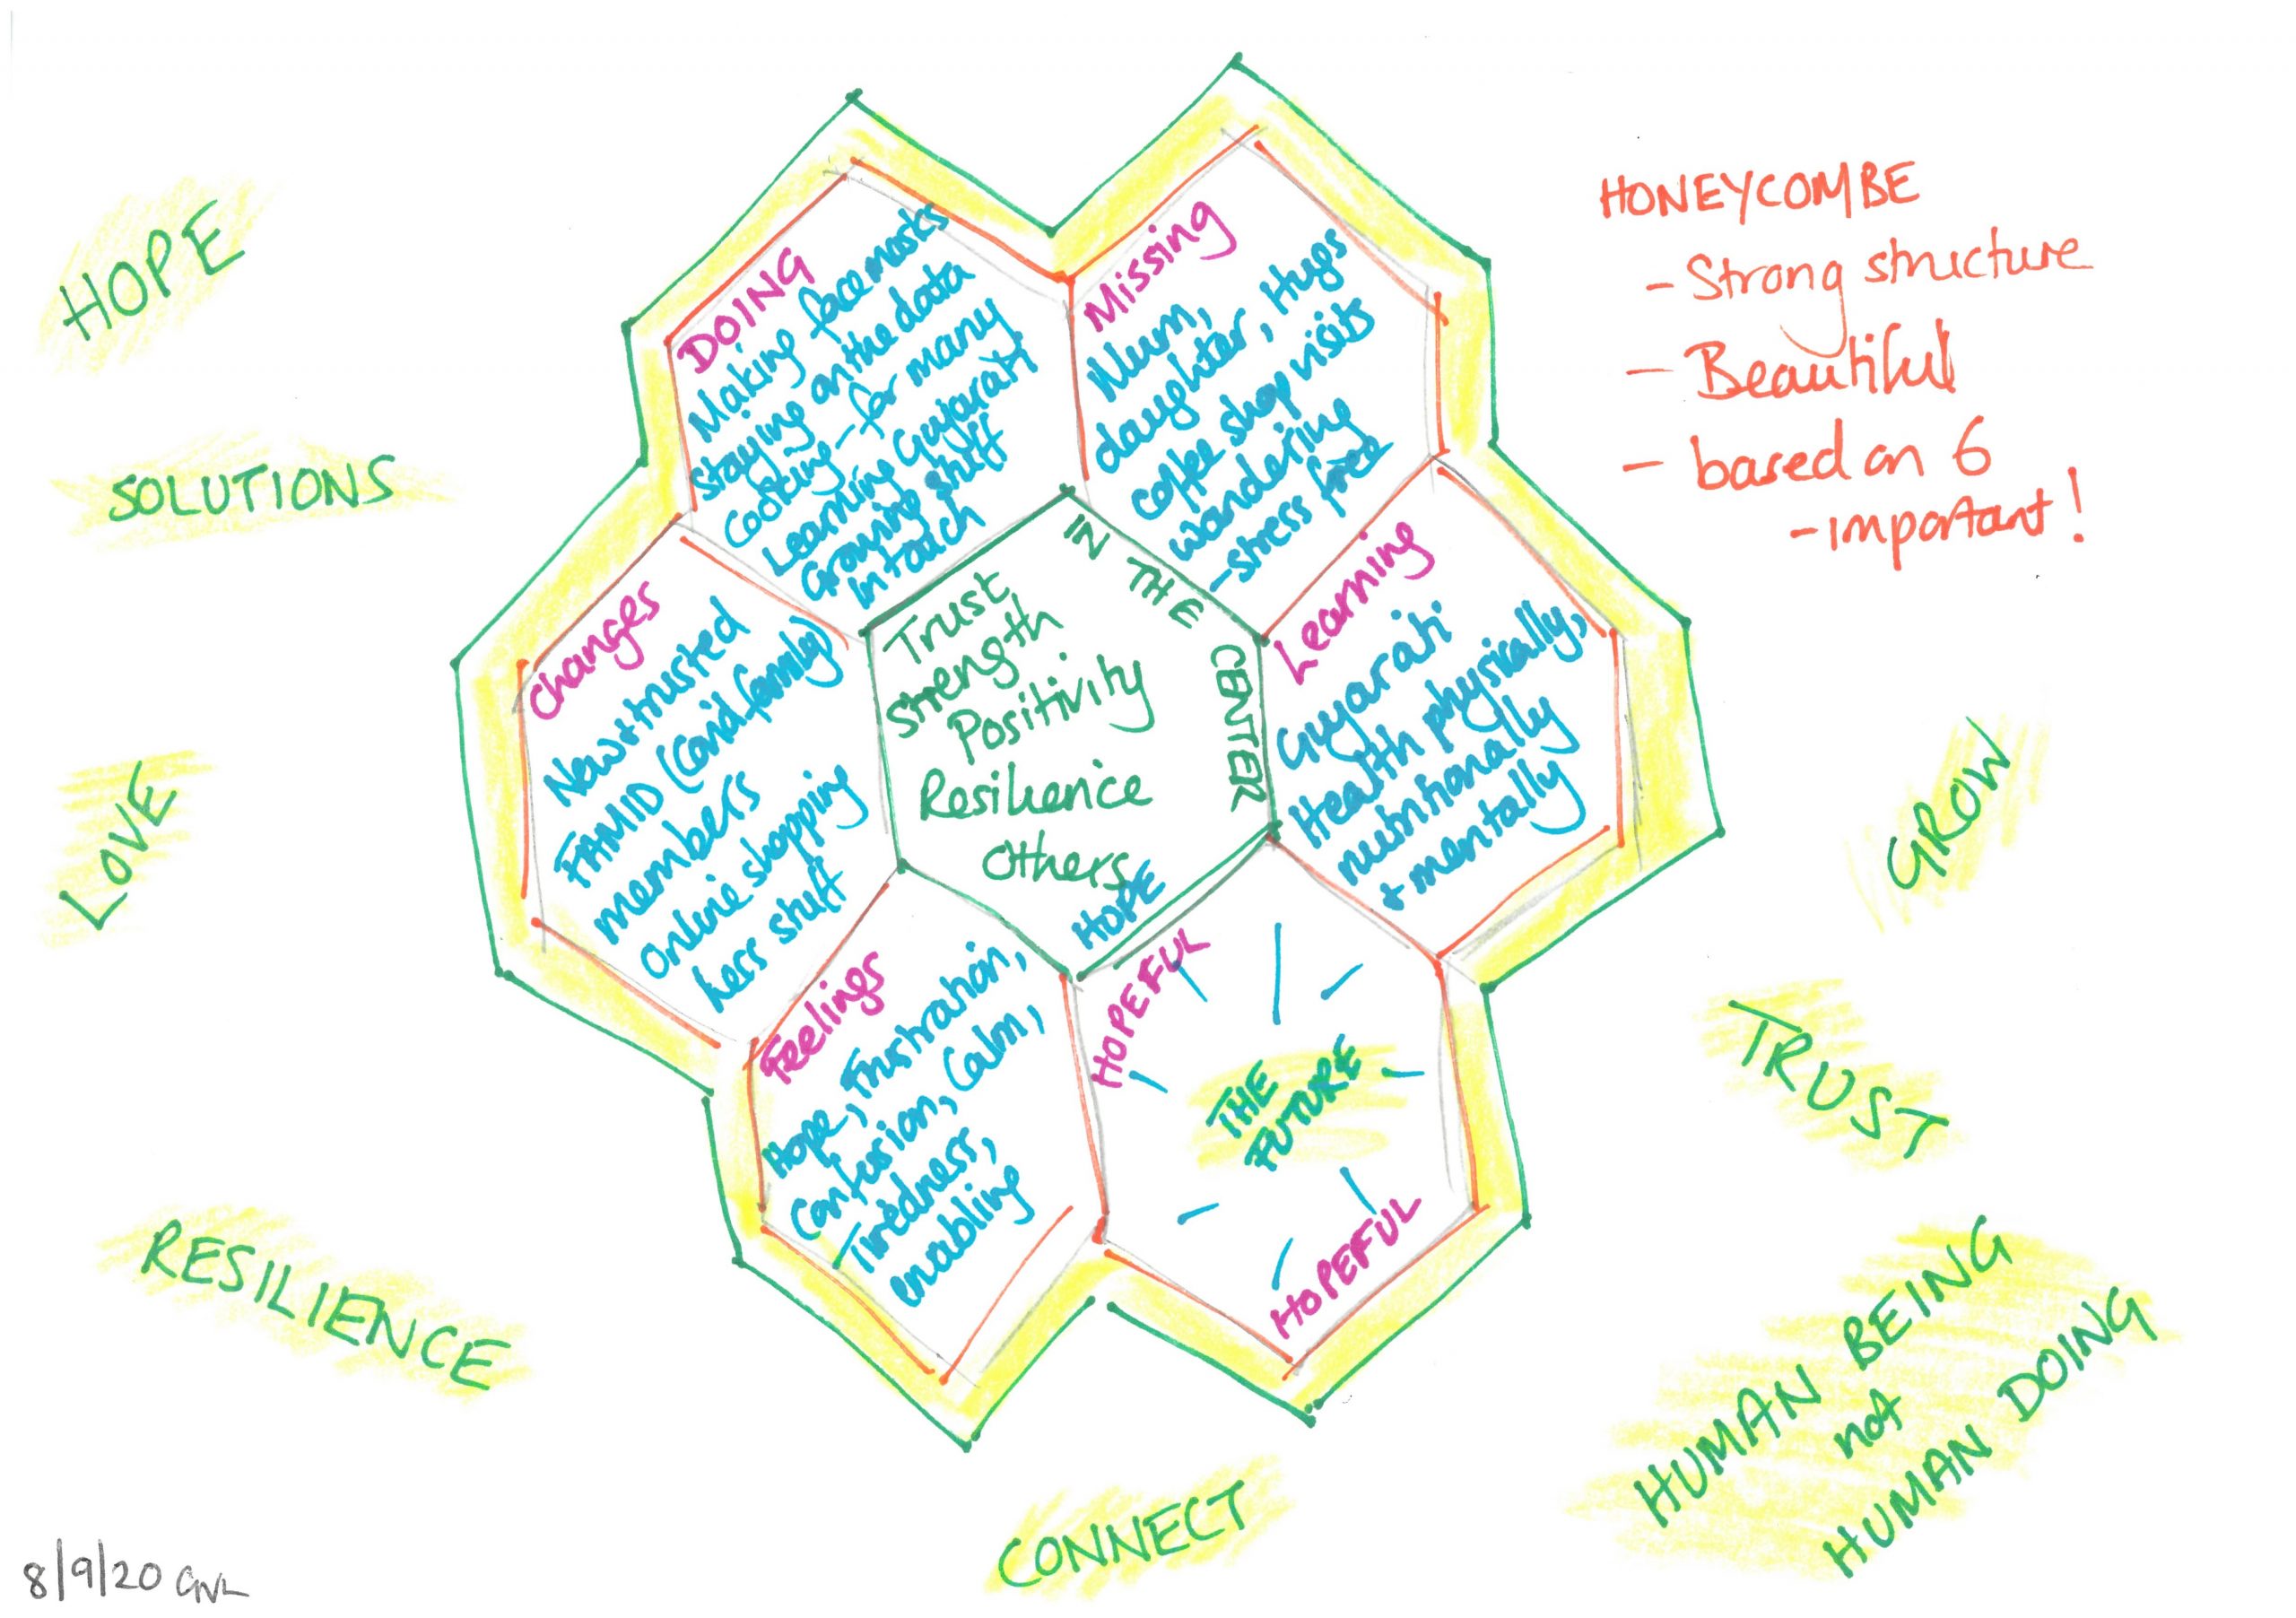 HOPE
SOLUTIONS
LOVE
RESILIENCE
8/9/20
DOING
Making face masks
Staying on the data
Cooking - for many
Learning Gujarati
Growing stuff
In touch
Missing
Mum,
daughter, Hugs
coffee shop visits
wandering
- stress free
HONEYCOMBE
- Strong structure
- Beautiful
- based on 6
- important!
Changes
New + trusted
FAMID (Covid family)
members
Online shopping
Less stuff
IN THE CENTER
Trust
Strength
Positivity
Resilience
Others
HOPE
Learning
Gujarati
Health physically,
nutritionally
+ mentally
Feelings
Hope, Frustration,
Confusion, Calm,
Tiredness,
enabling
HOPEFUL
THE
FUTURE
HOPEFUL
GROW
TRUST
HUMAN BEING
not
HUMAN DOING
CONNECT